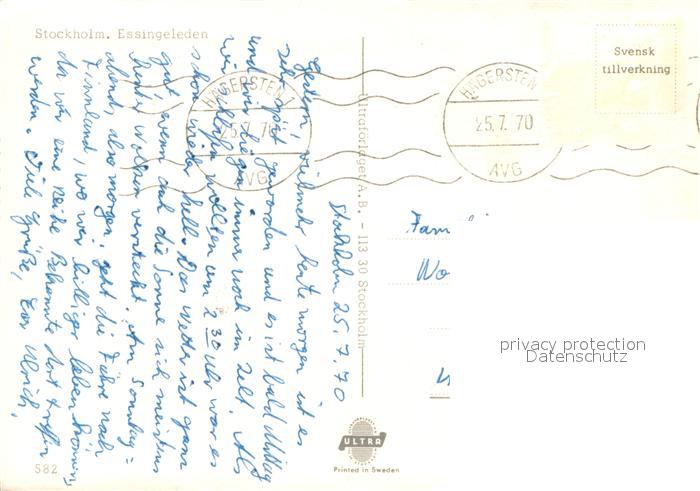 Stockholm. Essingeleden
Svensk
tillverkning
HÄGERSTEN 1
25.7.70
AVG
HÄGERSTEN
25.7.70
AVG
Ultraförlaget A.B. - 113 30 Stockholm
Stockholm 25.7.70
Gestern, vielmehr heute morgen ist es
sehr spät geworden und es ist bald Mittag
und wir liegen immer noch im Zelt. Als
wir schlafen wollten um 2 30 Uhr war es
schon wieder hell. Das Wetter ist ganz
gut, wenn auch die Sonne sich meistens
hinter Wolken versteckt. Am Sonntag=
abend, also morgen, geht die Fähre nach
Finnland, wo wir billiger leben können,
da wir eine Reihe Bekannte dort treffen
werden. Viele Grüße, Ulrich,
Fam
Wo
privacy protection
Datenschutz
582
ULTRA
Printed in Sweden